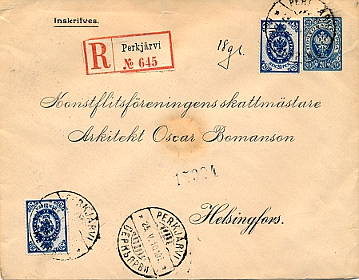 Inskrifves.
R Perkjärvi
№ 645
18 gr.
Konstflitsföreningens skattmästare
Arkitekt Oscar Bomanson
Helsingfors.
PERKJÄRVI
PERKJÄRVI